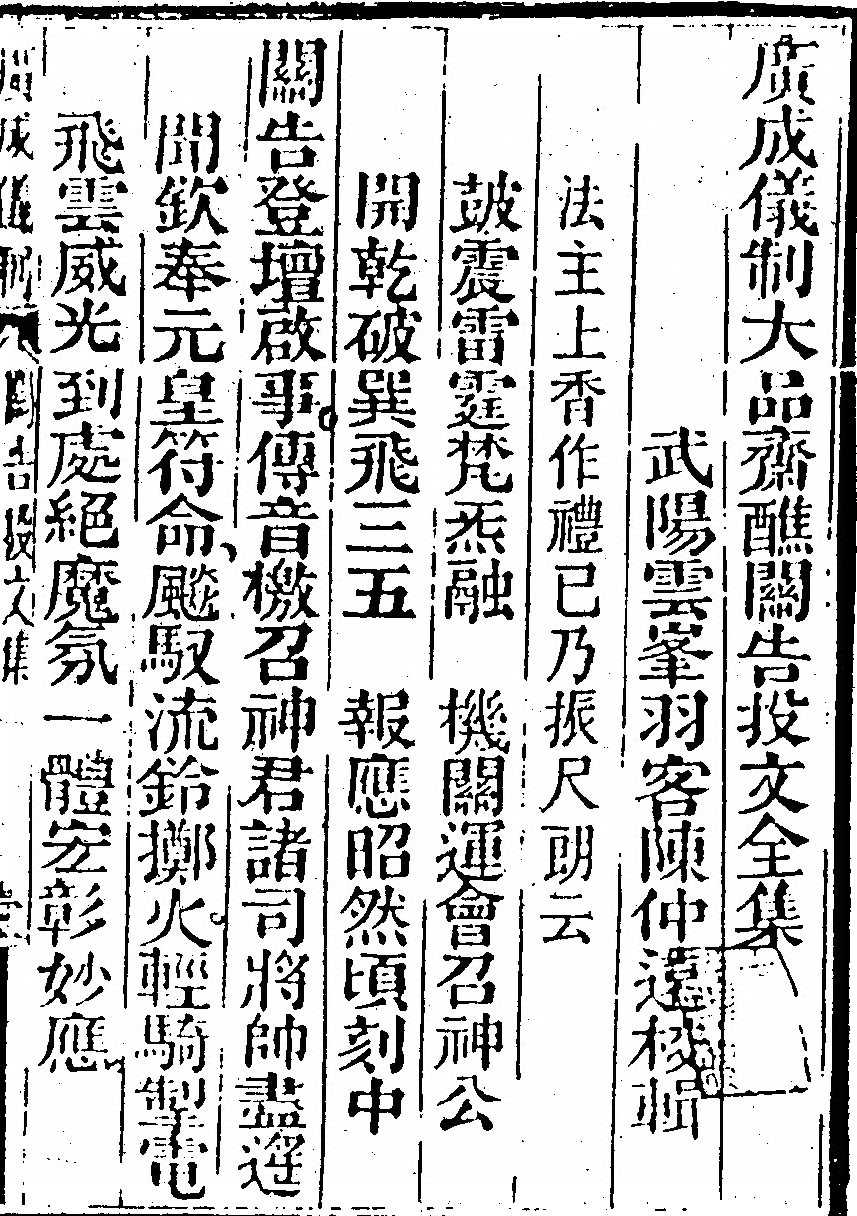 廣成儀制大品齋醮關告投文全集
武陽雲峯羽客陳仲遠校輯
法主上香作禮已乃振尺朗云
鼓震雷霆梵炁融 機關運會召神公
開乾破巽飛三五 報應昭然頃刻中
關告登壇啟事傳音檄召神君諸司將帥盡遥
聞欽奉元皇符命飈馭流鈴擲火輕騎掣電
飛雲威光到處絕魔氛一體宏彰妙應
廣成儀制 關告投文集